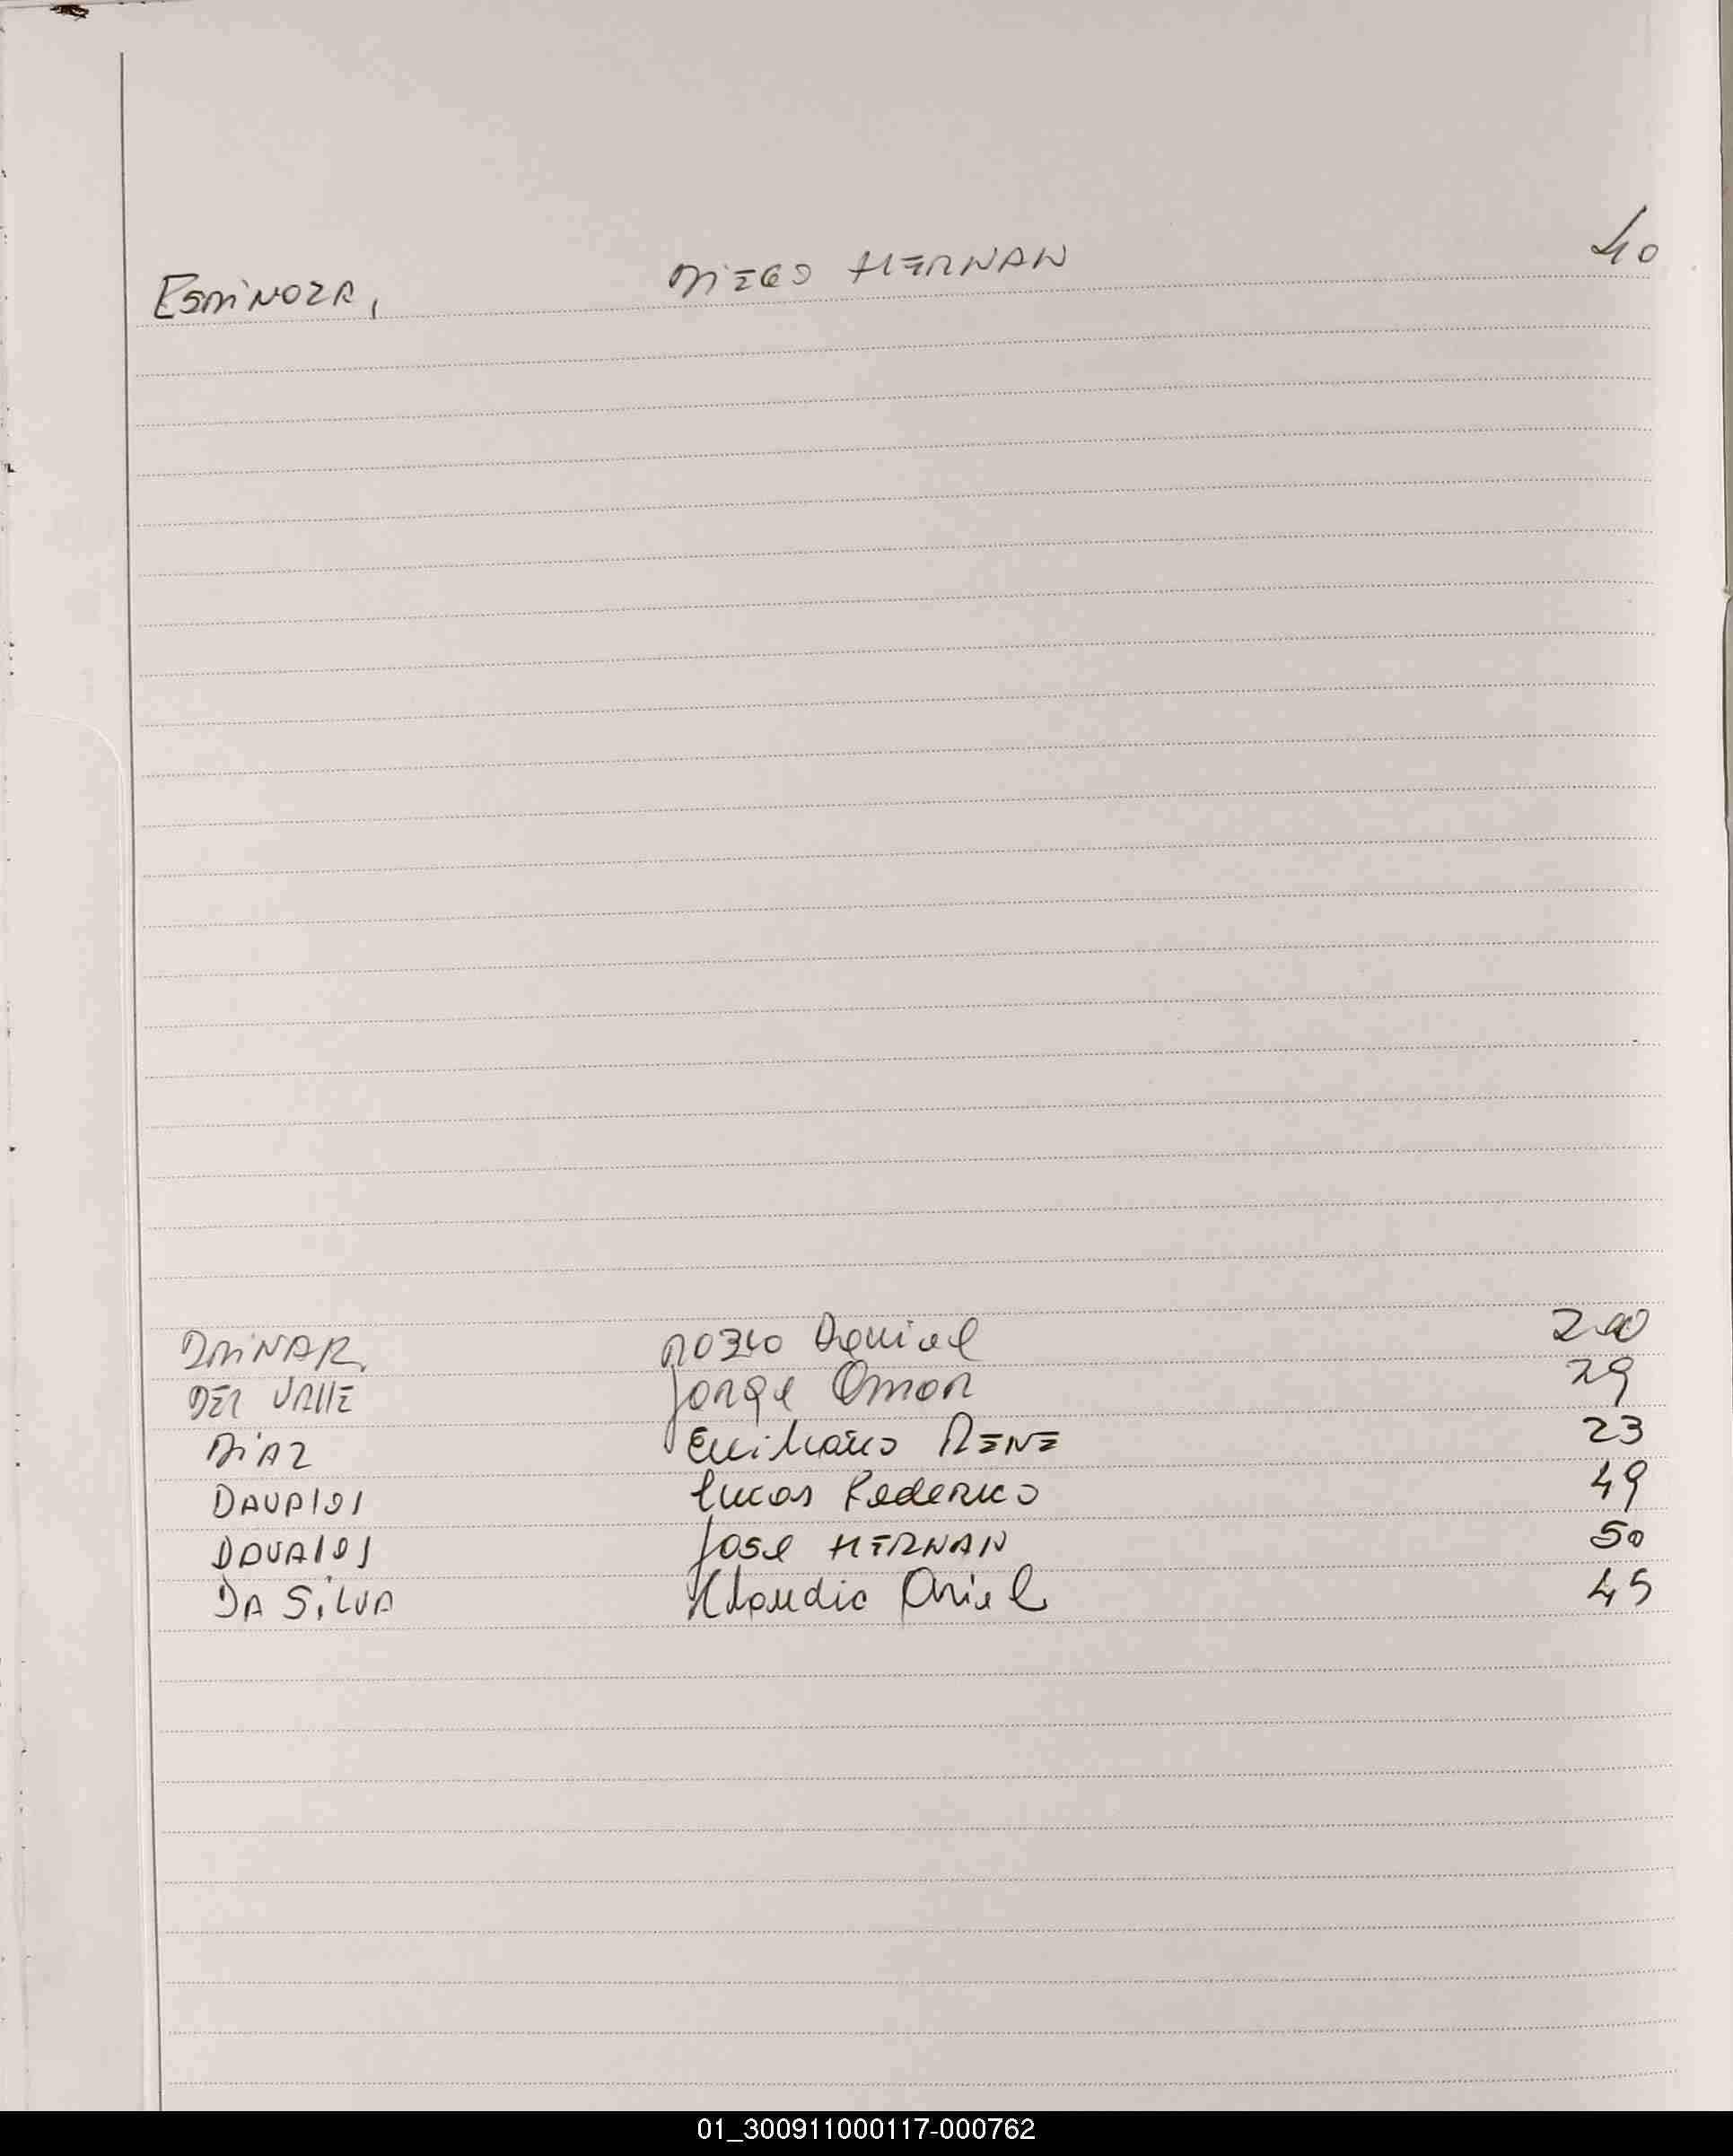 ESPINOZA, DIEGO HERNAN 40
DEL VALLE Jorge Omar 29
DIAZ Emiliano RENE 23
DAVALOS Lucas Federico 49
DAVALOS Jose HERNAN 50
DA SILVA Claudio Ariel 45
01_300911000117-000762